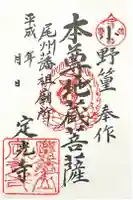 小野篁奉作
本尊地蔵菩薩
尾州藩祖廟所
定光寺
平成 年 月 日